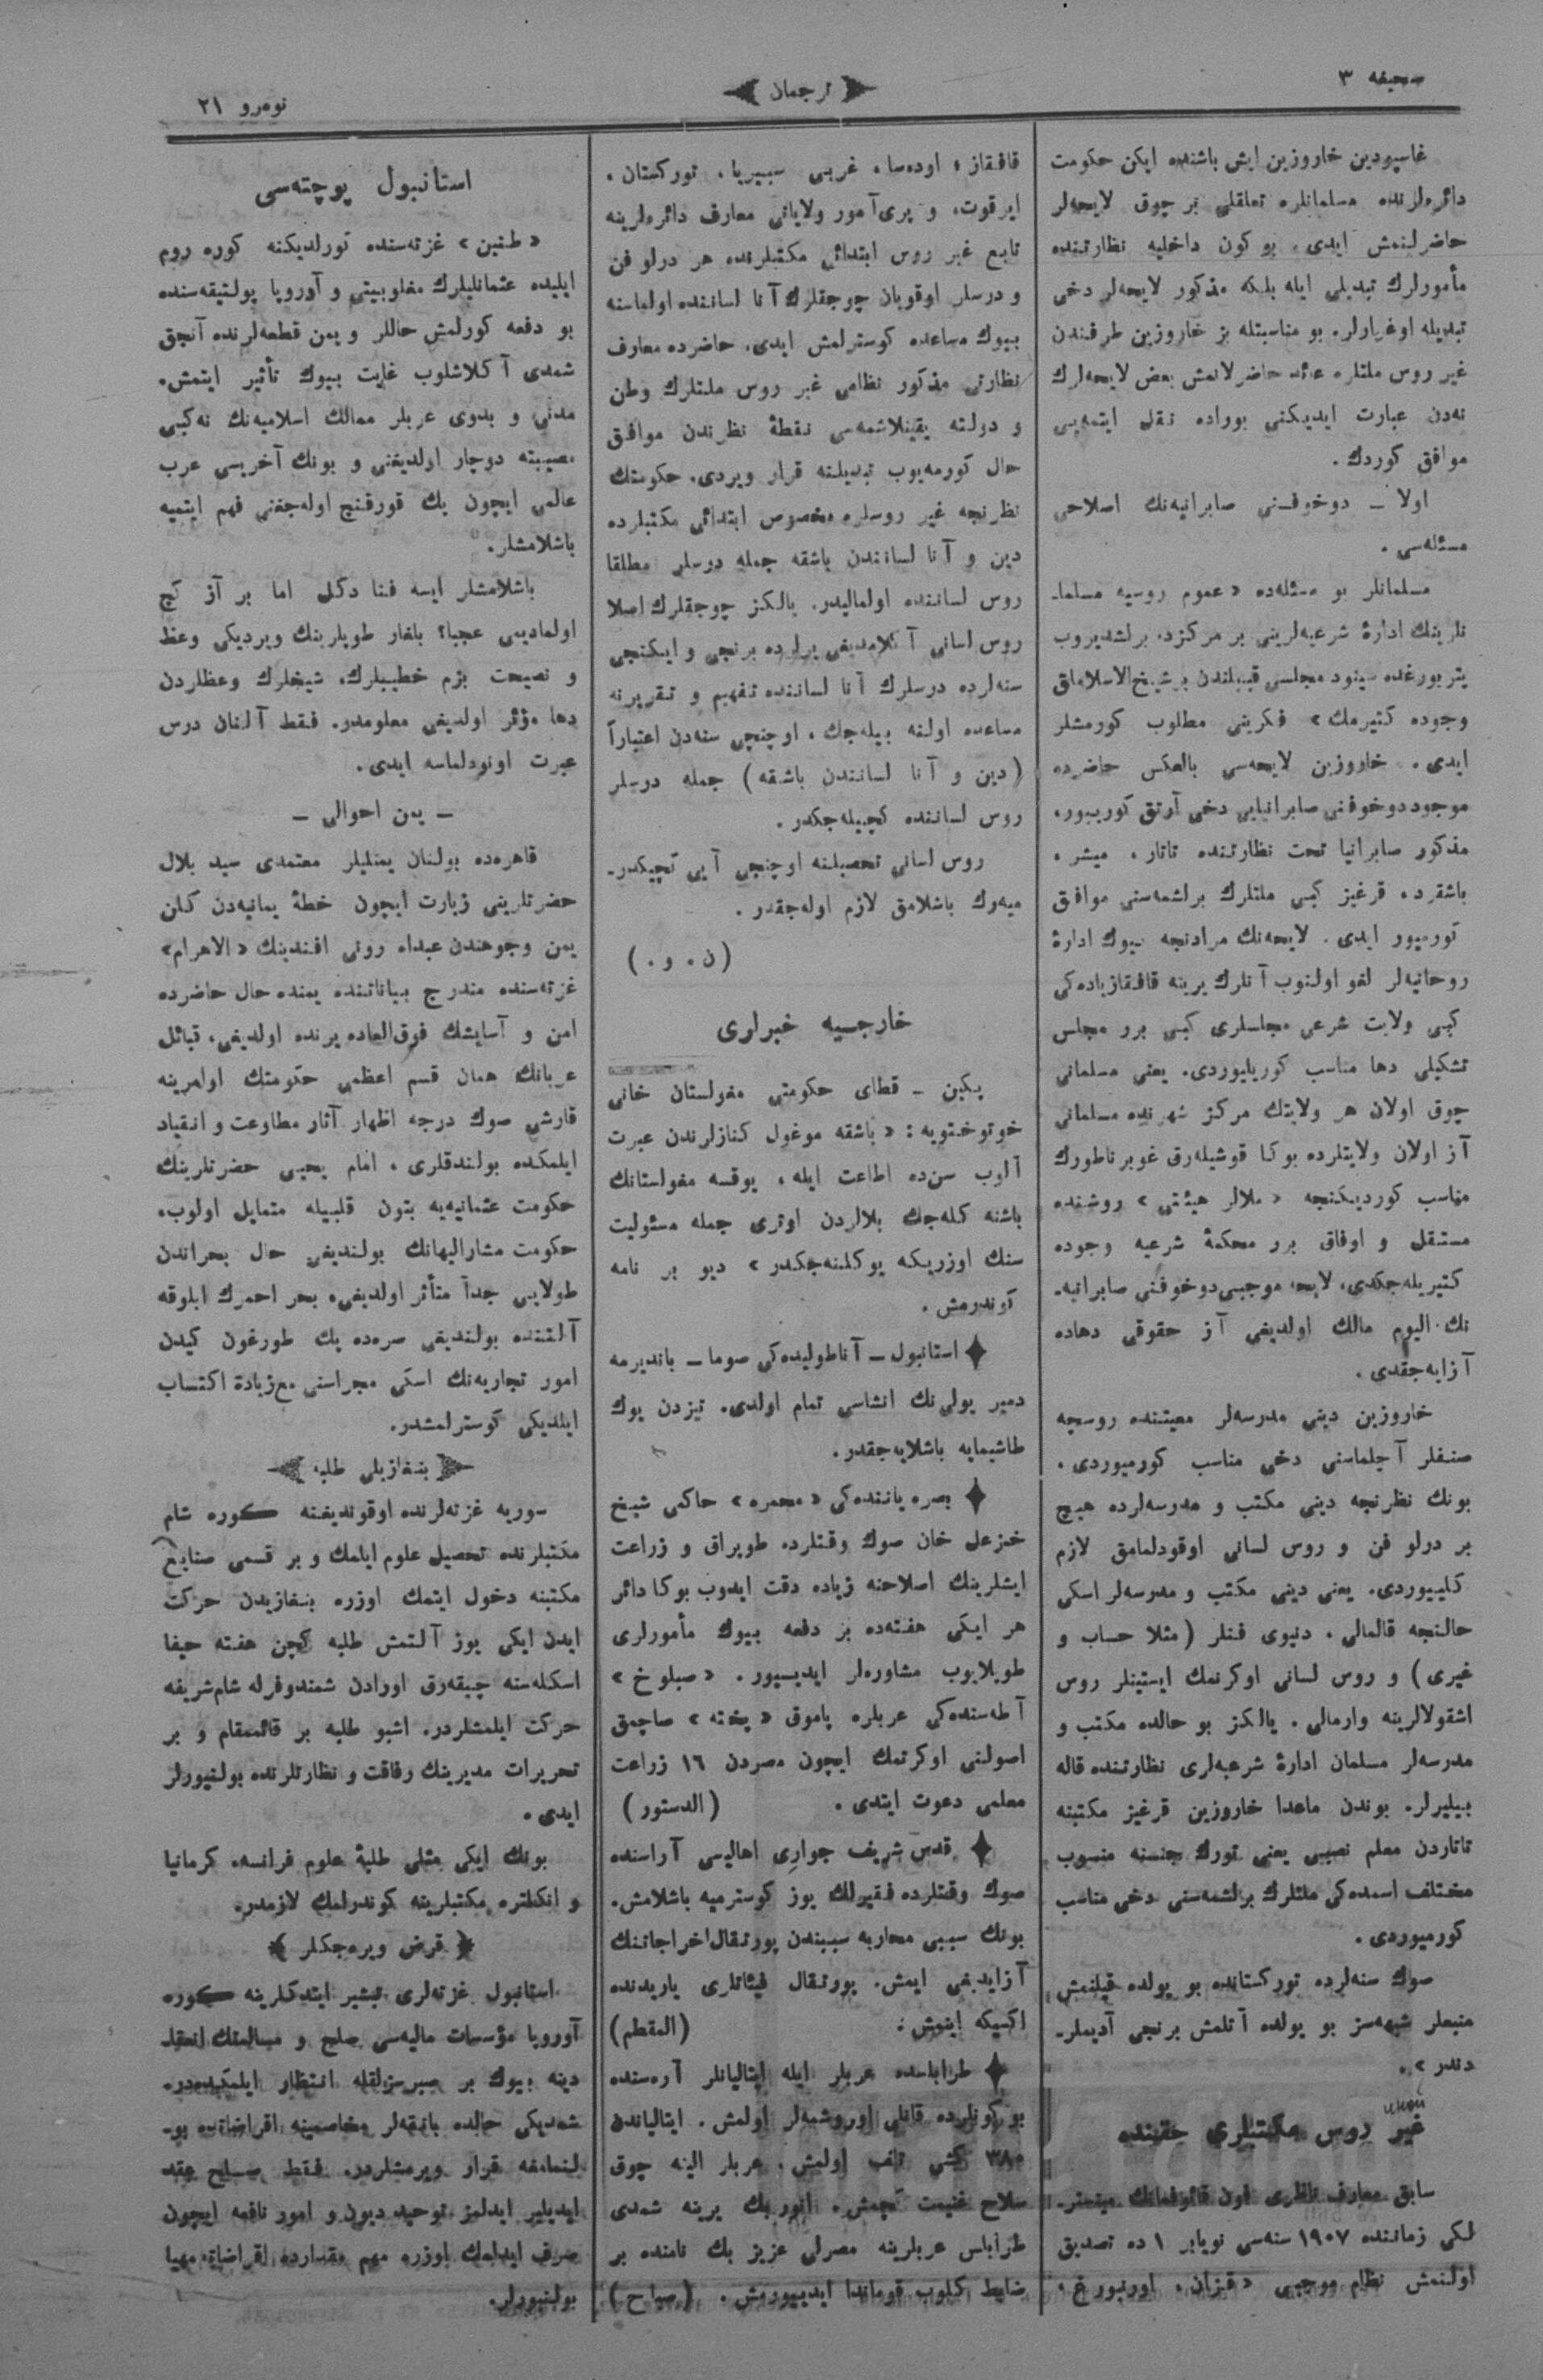 صحیفه ٣
ترجمان
نومرو ٢١
غاسپودین خاروزین ایش باشنده ایکن حکومت
دائره‌لرنده مسلمانلره تعلقلی بر چوق لایحه‌لر
حاضرلنمش ایدی. بو کون داخلیه نظارتنده
مأمورلرك تبدیلی ایله بلکه مذکور لایحه‌لر دخی
تبدیله اوغرارلر. بو مناسبتله بز خاروزین طرفندن
غیر روس ملتلره عائد حاضرلانمش بعض لایحه‌لرك
نه‌دن عبارت ایدیکنی بوراده نقل ایتمه‌یی
موافق کوردك.
اولا ــ دوخوفنی صابرانیه‌نك اصلاحی
مسئله‌سی.
مسلمانلر بو مسئله‌ده «عموم روسیه مسلما-
نلرینك ادارهٔ شرعیه‌لرینی بر مرکزده برلشدیروب
پتربورغده سینود مجلسی قبیلندن بر شیخ الاسلاملق
وجوده کتیرمك» فکرینی مطلوب کورمشلر
ایدی. خاروزین لایحه‌سی بالعکس حاضرده
موجود دوخوفنی صابرانیایی دخی آرتق کوریور،
مذکور صابرانیا تحت نظارتنده تاتار، میشر،
باشقرد، قرغیز کبی ملتلرك برلشمه‌سنی موافق
کورمیور ایدی. لایحه‌نك مرادنجه بیوك ادارهٔ
روحانیه‌لر لغو اولنوب آنلرك یرینه قافقازیاده‌کی
کبی ولایت شرعی مجلسلری کبی برر مجلس
تشکیلی دها مناسب کوریلیوردی. یعنی مسلمانی
چوق اولان هر ولایتك مرکز شهرنده مسلمانی
آز اولان ولایتلرده بوکا قوشیله‌رق غوبرناطورك
مناسب کوردیکنجه «ملالر هیئتی» روشنده
مستقل و اوفاق برر محکمهٔ شرعیه وجوده
کتیریله‌جکدی، لایحه موجبی دوخوفنی صابرانیه-
نك الیوم مالك اولدیغی آز حقوقی دهاده
آزایه‌جقدی.
خاروزین دینی مدرسه‌لر معیتنده روسچه
صنفلر آچلماسنی دخی مناسب کورمیوردی.
بونك نظرنجه دینی مکتب و مدرسه‌لرده هیچ
بر درلو فن و روس لسانی اوقودلمامق لازم
کلییوردی. یعنی دینی مکتب و مدرسه‌لر اسکی
حالنجه قالمالی. دنیوی فنلر (مثلا حساب و
غیری) و روس لسانی اوکرنمك ایستینلر روس
اشقولالرینه وارمالی. یالکز بو حالده مکتب و
مدرسه‌لر مسلمان ادارهٔ شرعیه‌لری نظارتنده قاله
بیلیرلر. بوندن ماعدا خاروزین قرغیز مکتبنه
تاتاردن معلم نصبی یعنی تورك جنسنه منسوب
مختلف اسمده‌کی ملتلرك برلشمه‌سنی دخی مناسب
کورمیوردی.
صوك سنه‌لرده تورکستانده بو یولده قیلنمش
منعلر شبهه‌سز بو یولده آتلمش برنجی آدیملر-
دندر».
غیر روس مکتبلری حقنده
سابق معارف ناظری فون قائوفمانك مینستر-
لکی زماننده ١٩٠٧ سنه‌سی نویابر ١ ده تصدیق
اولنمش نظام موجبی «قزان، اورنبورغ،
قافقاز، اوده‌سا، غربی سبیریا، تورکستان،
ایرقوت، و پری‌آمور ولایاتی معارف دائره‌لرینه
تابع غیر روس ابتدائی مکتبلرنده هر درلو فن
و درسلر اوقویان چوجقلرك آنا لساننده اولماسنه
بیوك مساعده کوسترلمش ایدی. حاضرده معارف
نظارتی مذکور نظامی غیر روس ملتلرك وطن
و دولته یقینلاشمه‌سی نقطهٔ نظرندن موافق
حال کورمه‌یوب تبدیلنه قرار ویردی. حکومتك
نظرنجه غیر روسلره مخصوص ابتدائی مکتبلرده
دین و آنا لسانندن باشقه جمله درسلر مطلقا
روس لساننده اولمالیدر. یالکز چوجقلرك اصلا
روس لسانی آکلامدیغی یرلرده برنجی و ایکنجی
سنه‌لرده درسلرك آنا لساننده تفهیم و تقریرنه
مساعده اولنه بیله‌جك، اوچنچی سنه‌دن اعتباراً
(دین و آنا لسانندن باشقه) جمله درسلر
روس لساننده کچیله‌جکدر.
روس لسانی تحصیلنه اوچنجی آیی کچیکدر-
میه‌رك باشلامق لازم اوله‌جقدر.
(ن. و.)
خارجیه خبرلری
پکین ــ قطای حکومتی مغولستان خانی
خوتوختویه: «باشقه موغول کنازلرندن عبرت
آلوب سن‌ده اطاعت ایله، یوقسه مغولستانك
باشنه کله‌جك بلالردن اوتری جمله مسئولیت
سنك اوزریکه یوکلنه‌جکدر» دیو بر نامه
کوندرمش.
استانبول ــ آناطولیده‌کی صوما ــ باندیرمه
دمیر یولی نك انشاسی تمام اولدی. تیزدن یوك
طاشیمایه باشلایه‌جقدر.
بصره یاننده‌کی «محمره» حاکمی شیخ
خزعل خان صوك وقتلرده طوپراق و زراعت
ایشلرینك اصلاحنه زیاده دقت ایدوب بوکا دائر
هر ایکی هفته‌ده بر دفعه بیوك مأمورلری
طوپلایوب مشاوره‌لر ایدییور. «صبلوخ»
آطه‌سنده‌کی عربلره پاموق «پخته» صاچمق
اصولنی اوکرتمك ایچون مصردن ١٦ زراعت
معلمی دعوت ایتدی. (الدستور)
قدس شریف جواری اهالیسی آراسنده
صوك وقتلرده فقیرلك یوز کوسترمیه باشلامش.
بونك سببی محاربه سببندن پورتقال اخراجاتنك
آزایدیغی ایمش. پورتقال فیئاتلری یاریدنده
اکسیکه اینمش. (المقطم)
طرابلسده عربلر ایله ایتالیانلر آره‌سنده
بو کونلرده قانلی اوروشمه‌لر اولمش. ایتالیاندن
٣٨٠ کشی تلف اولمش. عربلر الینه چوق
سلاح غنیمت کچمش. انور بك یرینه شمدی
طرابلس عربلرینه مصرلی عزیز بك نامنده بر
ضابط کلوب قوماندا ایدییورمش. (صباح)
استانبول پوچته‌سی
«طنین» غزته‌سنده کورلدیکنه کوره روم
ایلیده عثمانلیلرك مغلوبیتی و آوروپا پولتیقه‌سنده
بو دفعه کورلمش حاللر و یمن قطعه‌لرنده آنجق
شمدی آکلاشلوب غایت بیوك تأثیر ایتمش.
مدنی و بدوی عربلر ممالك اسلامیه‌نك نه‌کبی
مصیبته دوچار اولدیغنی و بونك آخریسی عرب
عالمی ایچون پك قورقنج اوله‌جغنی فهم ایتمیه
باشلامشلر.
باشلامشلر ایسه فنا دکل اما بر آز کچ
اولمادیمی عجبا؟ بلغار طوپلرینك ویردیکی وعظ
و نصیحت بزم خطیبلرك، شیخلرك وعظلردن
دها مؤثر اولدیغی معلومدر. فقط آلنان درس
عبرت اونودلماسه ایدی.
ــ یمن احوالی ــ
قاهره‌ده بولنان یمنلیلر معتمدی سید بلال
حضرتلرینی زیارت ایچون خطهٔ یمانیه‌دن کلن
یمن وجوهندن عبداه رونی افندینك «الاهرام»
غزته‌سنده مندرج بیاناتنده یمنده حال حاضرده
امن و آسایشك فوق‌العاده یرنده اولدیغی، قبائل
عربانك همان قسم اعظمی حکومتك اوامرینه
قارشی صوك درجه اظهار آثار مطاوعت و انقیاد
ایلمکده بولندقلری، امام یحیی حضرتلرینك
حکومت عثمانیه‌یه بتون قلبیله متمایل اولوب،
حکومت مشارالیهانك بولندیغی حال بحراندن
طولایی جداً متأثر اولدیغی، بحر احمرك ابلوقه
آلتنده بولندیغی صره‌ده پك طورغون کیدن
امور تجاریه‌نك اسکی مجراسنی مع زیادة اکتساب
ایلدیکی کوسترلمشدر.
بنغازیلی طلبه
سوریه غزته‌لرنده اوقوندیغنه کوره شام
مکتبلرنده تحصیل علوم ایلمك و بر قسمی صنایع
مکتبنه دخول ایتمك اوزره بنغازیدن حرکت
ایدن ایکی یوز آلتمش طلبه کچن هفته حیفا
اسکله‌سنه چیقه‌رق اورادن شمندوفرله شام شریفه
حرکت ایلمشلردر. اشبو طلبه بر قائممقام و بر
تحریرات مدیرینك رفاقت و نظارتلرنده بولنیورلر
ایدی.
بونك ایکی مثلی طلبهٔ علوم فرانسه، کرمانیا
و انکلتره مکتبلرینه کوندرلمك لازمدر.
قرض ویره‌جکلر
استانبول غزته‌لری تبشیر ایتدکلرینه کوره
آوروپا مؤسسات مالیه‌سی صلح و مسالمتك انعقا-
دینه بیوك بر صبرسزلقله انتظار ایلمکده‌در.
شمدیکی حالده بانقه‌لر مخاصمینه اقراضاتده بو-
لنمامغه قرار ویرمشلردر. فقط صلح عقد
ایدیلیر ایدلمز توحید دیون و امور نافعه ایچون
صرف ایدلمك اوزره مهم مقدارده اقراضاته مهیا
بولنیورلر.